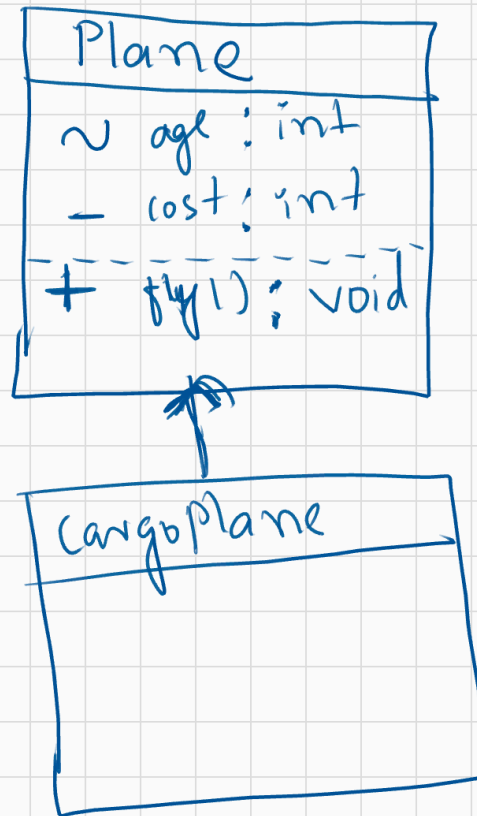 Plane
~ age : int
- cost : int
+ fly() : void
CargoPlane